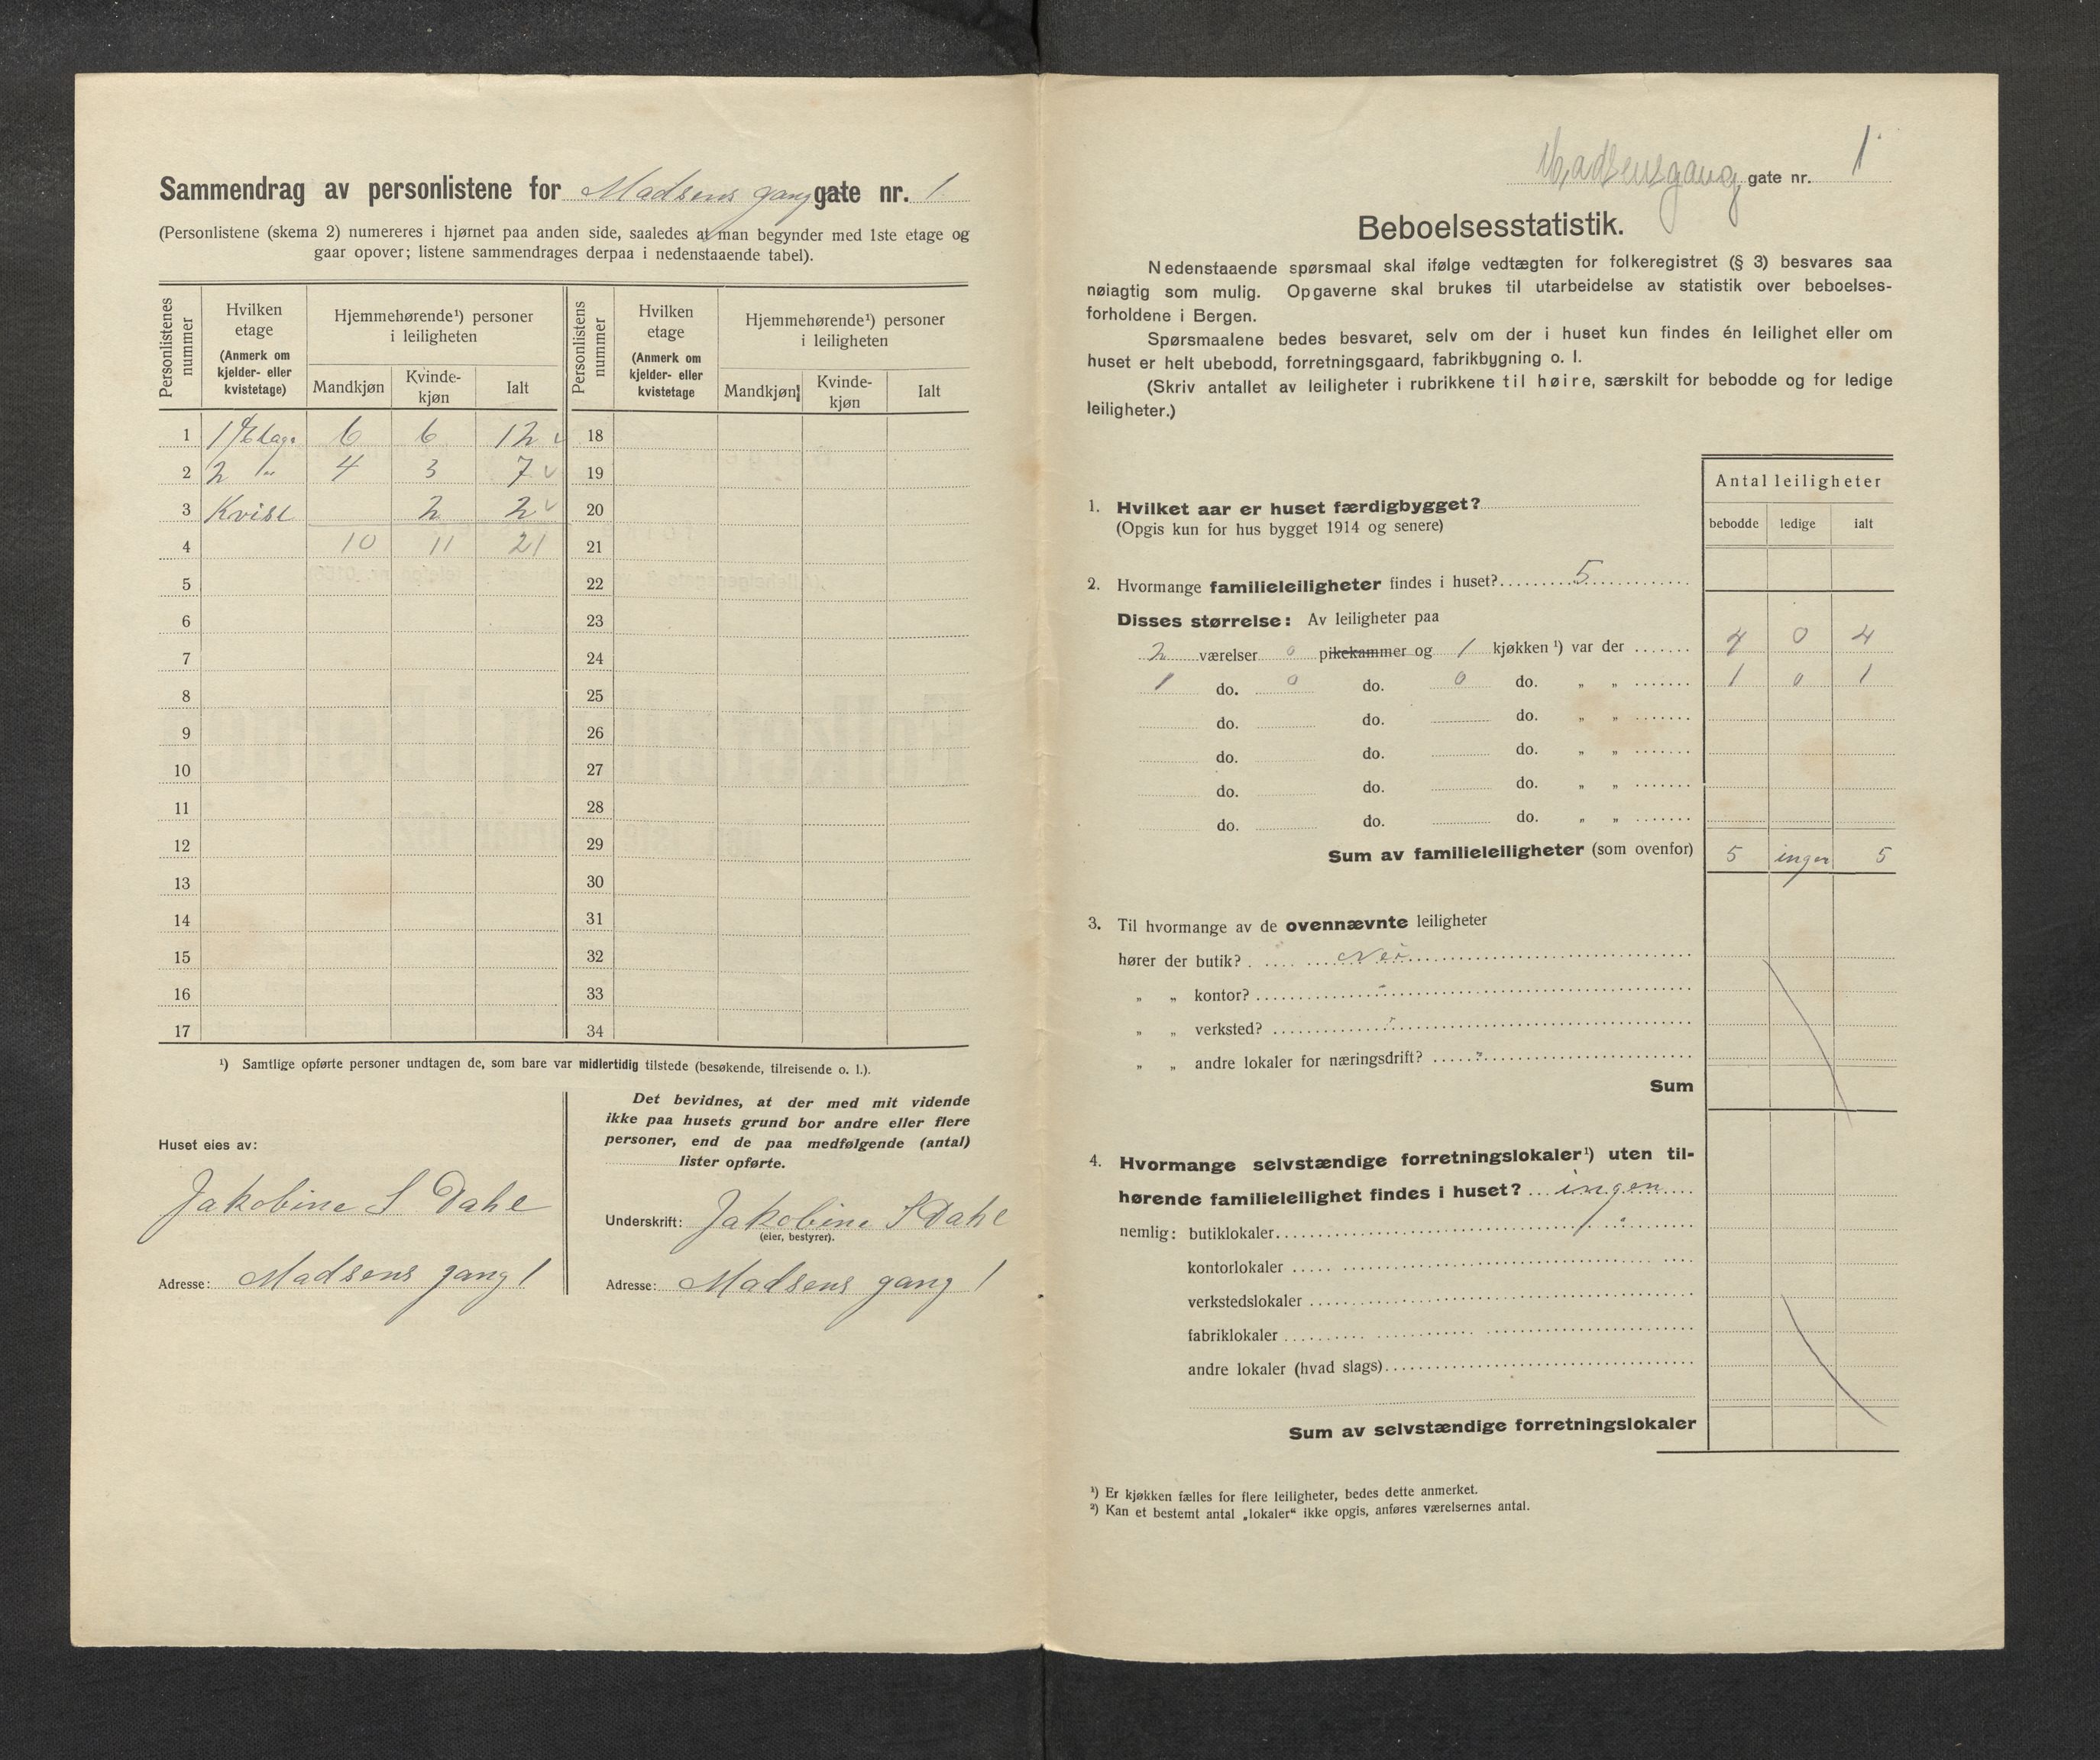 Sammendrag av personlistene for Madsens gang gate nr. 1
(Personlistene (skema 2) numereres i hjørnet paa anden side, saaledes at man begynder med 1ste etage og
gaar opover; listene sammendrages derpaa i nedenstaaende tabel).
Personlistenes nummer
Hvilken etage (Anmerk om kjelder- eller kvistetage)
Hjemmehørende¹) personer i leiligheten
Mandkjøn Kvinde-kjøn Ialt
Personlistens nummer
Hvilken etage (Anmerk om kjelder- eller kvistetage
Hjemmehørende¹) personer i leiligheten
Mandkjøn Kvinde-kjøn Ialt
1 1 Etage 6 6 12 18
2 2 4 3 7 19
3 Kvist 2 2 20
4 10 11 21 21
5 22
6 23
7 24
8 25
9 26
10 27
11 28
12 29
13 30
14 31
15 32
16 33
17 34
¹) Samtlige opførte personer undtagen de, som bare var midlertidig tilstede (besøkende, tilreisende o. l.).
Huset eies av:
Jakobine S Dahl
Adresse: Madsens gang 1
Det bevidnes, at der med mit vidende
ikke paa husets grund bor andre eller flere
personer, end de paa medfølgende (antal)
lister opførte.
Underskrift: Jakobine S Dahl
(eier, bestyrer).
Adresse: Madsens gang 1
Madsensgang gate nr. 1
Beboelsesstatistik.
Nedenstaaende spørsmaal skal ifølge vedtægten for folkeregistret (§ 3) besvares saa
nøiagtig som mulig. Opgaverne skal brukes til utarbeidelse av statistik over beboelses-
forholdene i Bergen.
Spørsmaalene bedes besvaret, selv om der i huset kun findes én leilighet eller om
huset er helt ubebodd, forretningsgaard, fabrikbygning o. l.
(Skriv antallet av leiligheter i rubrikkene til høire, særskilt for bebodde og for ledige
leiligheter.)
Antal leiligheter
bebodde ledige ialt
1. Hvilket aar er huset færdigbygget?
(Opgis kun for hus bygget 1914 og senere)
2. Hvormange familieleiligheter findes i huset? 5
Disses størrelse: Av leiligheter paa
2 værelser 0 pikekammer og 1 kjøkken ¹) var der 4 0 4
1 do. 0 do. 0 do. „ „ 1 0 1
do. do. do. „ „
do. do. do. „ „
do. do. do. „ „
do. do. do. „ „
Sum av familieleiligheter (som ovenfor) 5 ingen 5
3. Til hvormange av de ovennævnte leiligheter
hører der butik? Nei
„ „ kontor?
„ „ verksted?
„ „ andre lokaler for næringsdrift?
Sum
4. Hvormange selvstændige forretningslokaler¹) uten til-
hørende familieleilighet findes i huset? ingen
nemlig: butiklokaler
kontorlokaler
verkstedslokaler
fabriklokaler
andre lokaler (hvad slags)
Sum av selvstændige forretningslokaler
¹) Er kjøkken fælles for flere leiligheter, bedes dette anmerket.
²) Kan et bestemt antal „lokaler“ ikke opgis, anføres værelsernes antal.